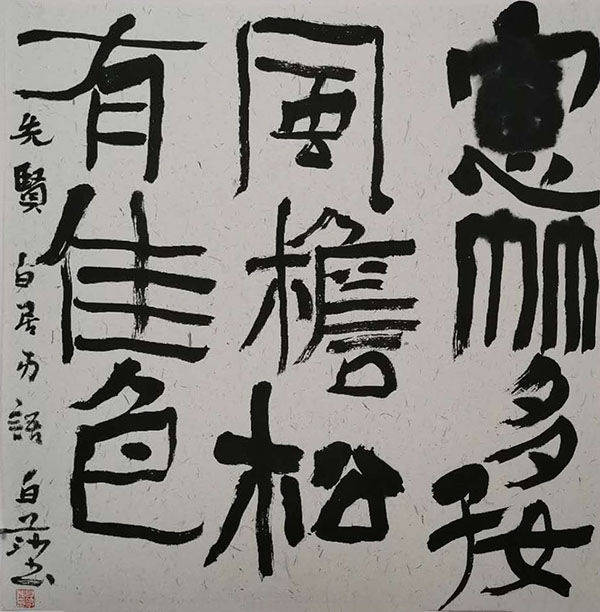 窓竹多好
風檐松
有佳色
先賢白居易語 白莎书